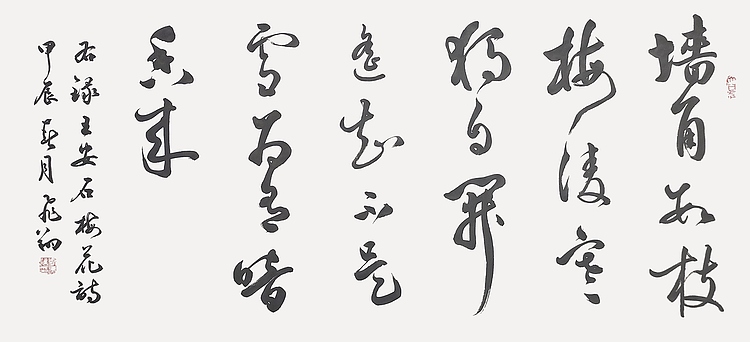 墙角数枝
梅凌寒
独自开
遥知不是
雪为有暗
香来
右录王安石梅花诗
甲辰春月飞翔